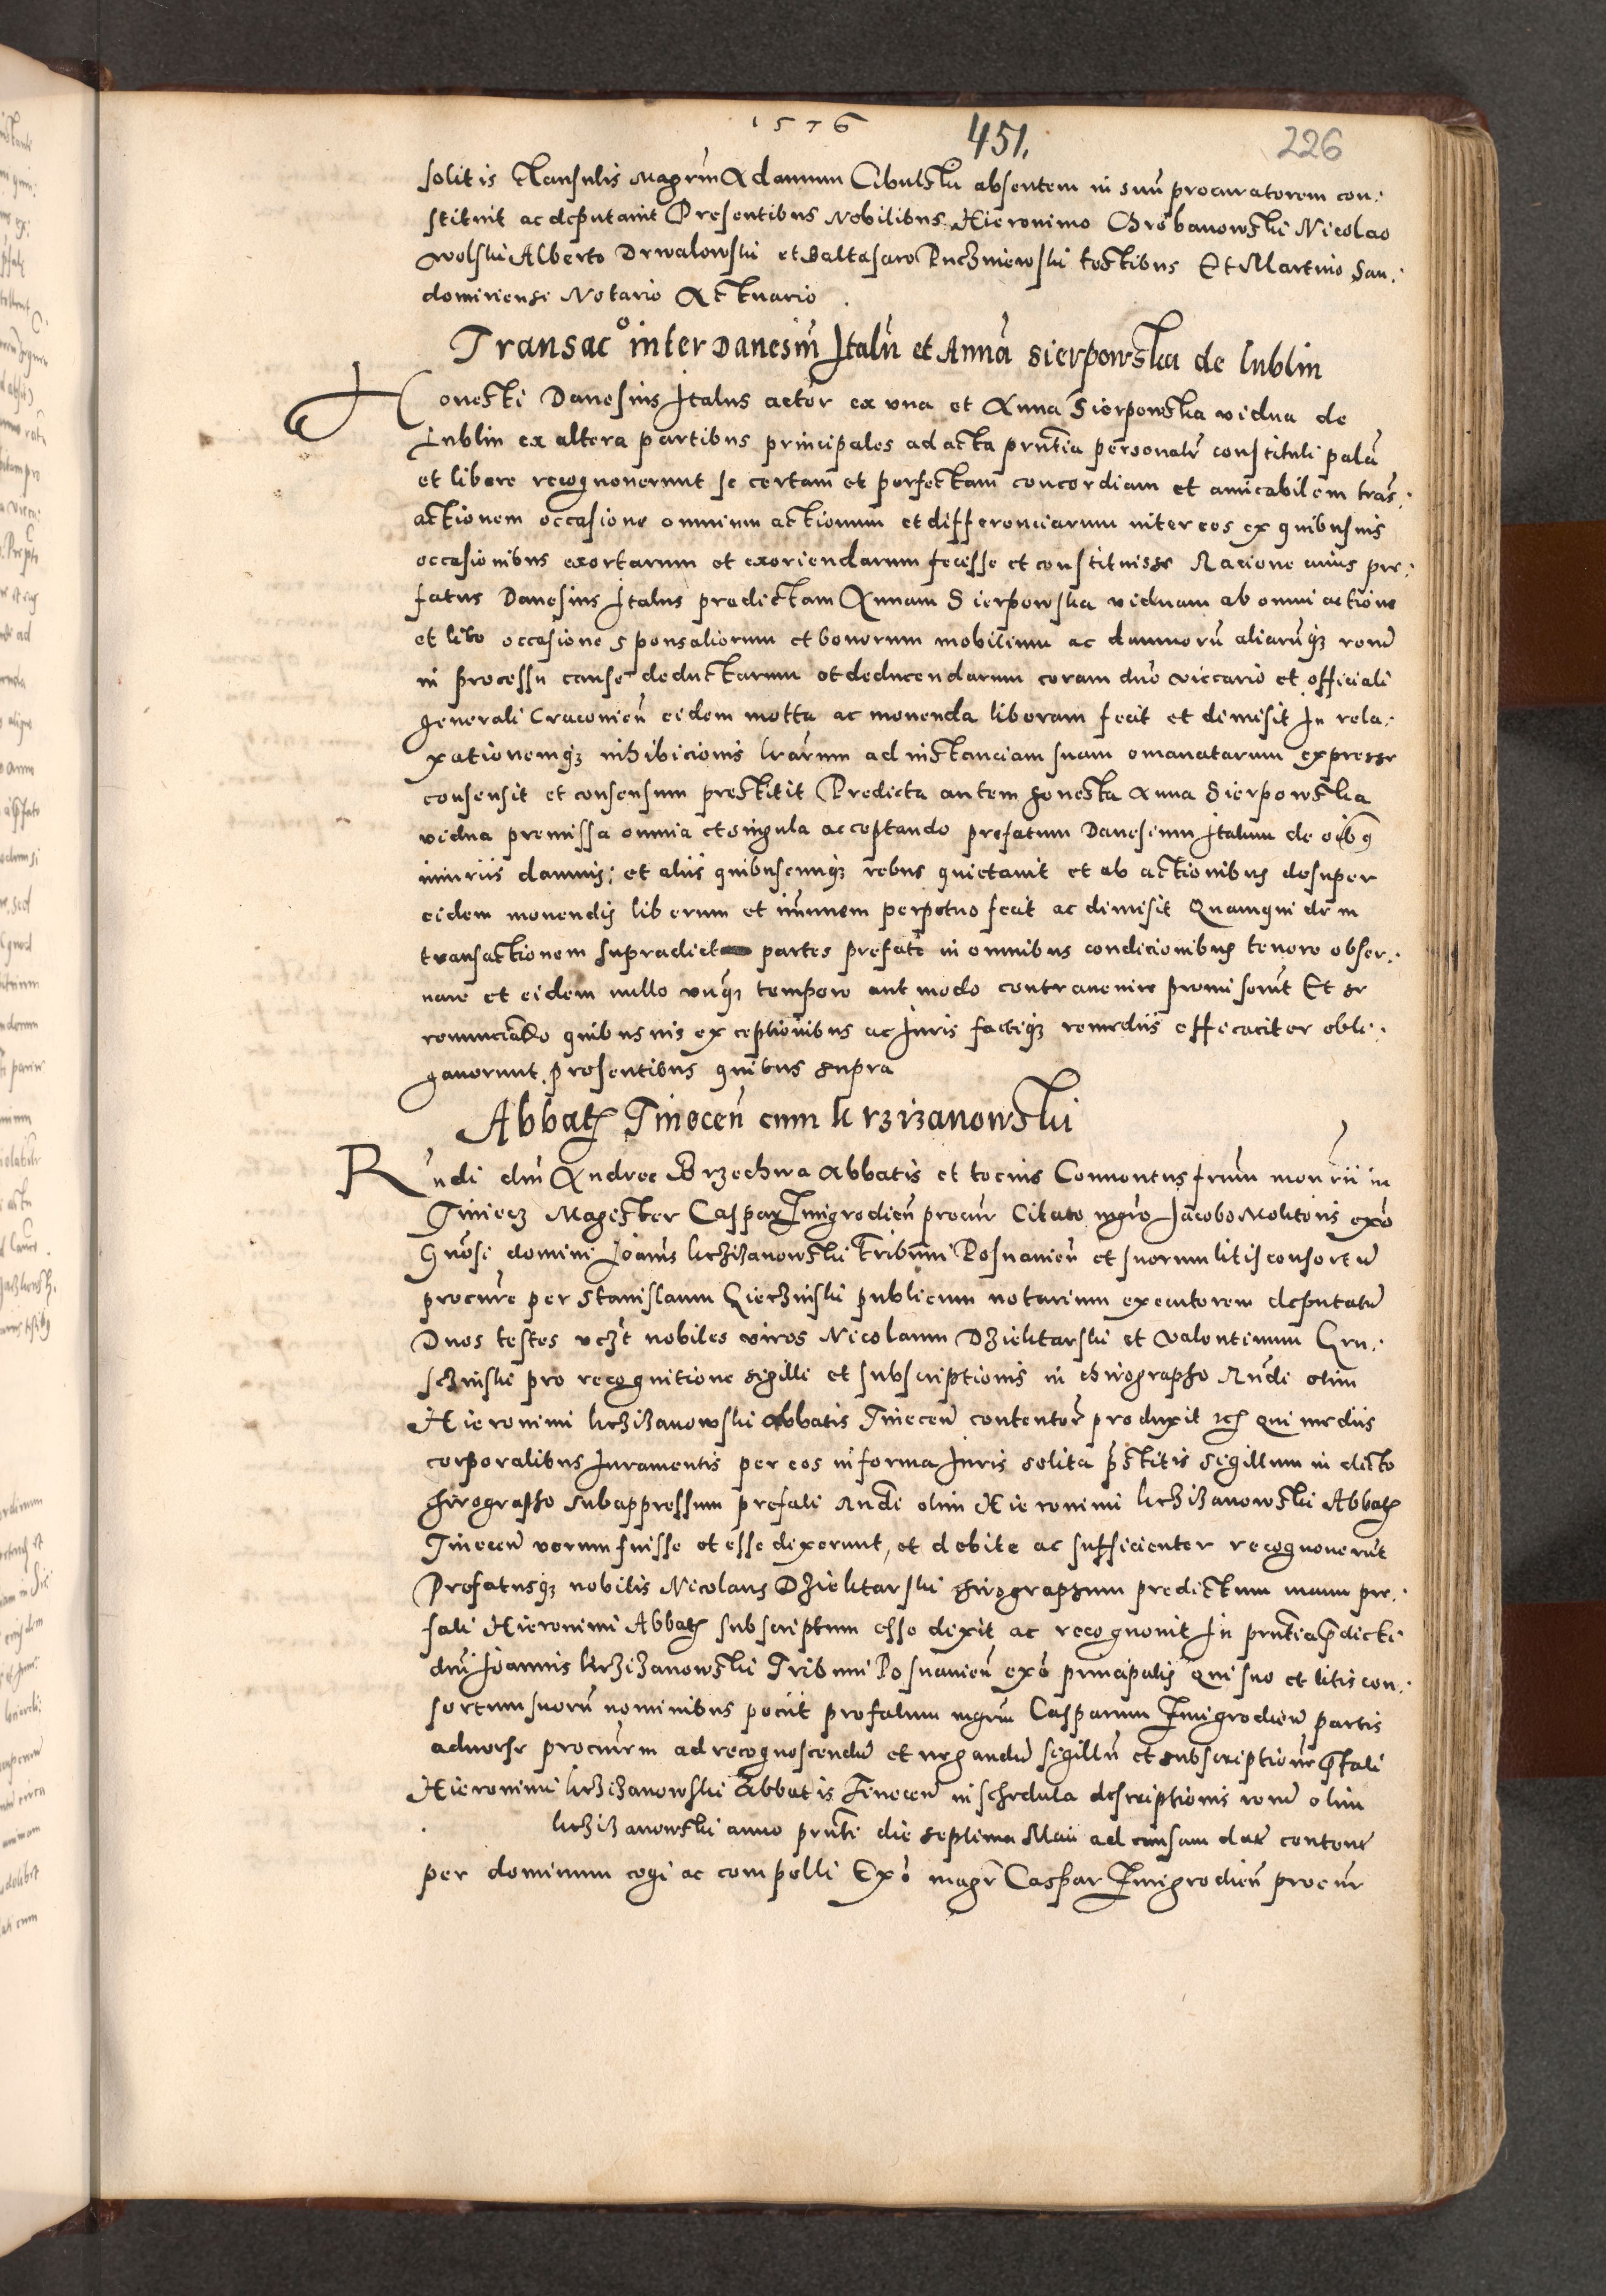 1576
451.
226
solitis clausulis Magrum Adamum Cibulski absentem in suu procuratorem con:
stituit ac deputavit Presentibus Nobilibus Hieronimo Chrobanowski Nicolao
Wolski Alberto Drwalowski et Baltasaro Puchniewski testibus Et Martino San:
domiriensi Notario Actuario
Transaco inter Danesiu Italu et Anna Sierpowska de Lublin
Honesti Danesius Italus actor ex una et Anna Sierpowska vidua de
Lublin ex altera partibus principales ad acta prntia personalr constituti pala
et libere recognoverunt se certam et perfectam concordiam et amicabilem tras:
actionem occasione omnium actionum et differenciarum inter eos ex quibusuis
occasionibus exortarum et exoriendarum fecisse et constituisse Racione cuius pre:
fatus Danesius Italus predictam Annam Sierpowska viduam ab omni actione
et lite occasione sponsaliorum et bonorum mobilium ac damnoru aliaruqz reru
in processu cause deductarum et deducendarum coram dno vicario et officiali
generali Cracovien eidem motta ac movenda liberam fecit et dimisit In rela:
xationemqz inhibicionis lrarum ad instanciam suam emanatarum expresse
consensit et consensum prestitit Predicta autem honesta Anna Sierpowska
vidua premissa omnia et singula acceptando prefatum Danesium Italum de oibq
iniuriis damnis: et aliis quibuscumqz rebus quietavit et ab actionibus desuper
eidem movendis liberum et imunem perpetuo fecit ac dimisit Quamquidem
transactionem supradict partes prefate in omnibus condicionibus tenere obser:
uare et eidem nullo unqz tempore aut modo contravenire promiserut Et se
renunciado quibusuis exceptionibus ac Iuris factiqz remediis efficaciter obli:
gaverunt presentibus quibus supra
Abbatis Tinecen cum Krzizanowski
Rndi dni Andree Brzechwa Abbatis et tocius Conventus frum monrii in
Tiniecz Magister Caspar Zmigrodien procur Citato mgro Jacobo Molitoris exo
Gnosi domini Joanis Krzizanowski Tribuni Posnanien et suorum litis consortu
procure per Stanislaum publicum notarium executorem deputatu
Duos testes vczt nobiles viros Nicolaum Dzielitarski et Valentinum Gru:
schinski pro recognitione sigilli et subscriptionis in chirographo Rndi olim
Hieronimi Krzizanowski Abbatis Tinecen contentor produxit qui mediis
corporalibus Iuramentis per eos in forma Iuris solita prstitis sigillum in dicto
chirographo subappressum prefati Rndi olim Hieronimi Krzizanowski Abbatis
Tinecen verum fuisse et esse dixerunt, et debite ac sufficienter recognoverut
Prefatusqz nobilis Nicolaus Dzielitarski chirographum predictum manu pre:
fati Hieronimi Abbatis subscriptum esse dixit ac recognovit In prntia pdicti
dni Joannis Krzizanowski Tribuni Posnanien exo principalis qui suo et litis con:
sortum suoru nominibus peciit prefatum mgrum Casparum Zmigrodien partis
adverse procurem ad recognoscendu et negandu sigillu et subscriptione pfati
Hieronimi Krzizanowski Abbatis Tinecen in schedula descriptionis reru olim
Krzizanowski anno prnti die septima Maii ad causam datr contenr
per dominum cogi ac compelli Exo magr Caspar Zmigrodien procur